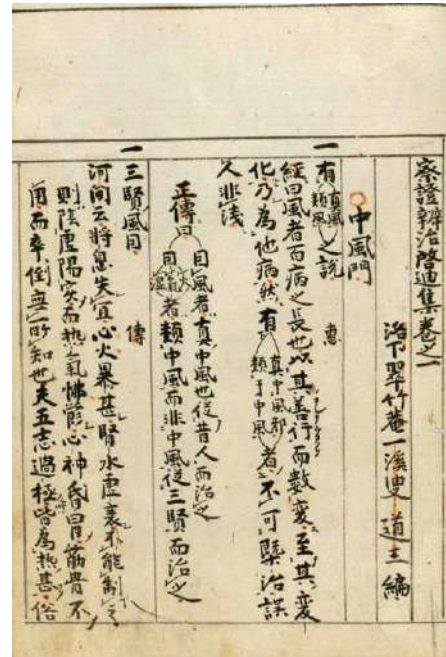 察證辨治啓迪集卷之一
洛下翠竹菴一溪叟道三編
中風門
一
有真風類風之説 惠
經曰風者百病之長也以其善行而數變至其變
化乃為他病然有真中風邪類于中風者不可槩治誤
人非淺
正傳曰因風者真中風也從昔人而治之
因火氣濕者類中風而非中風從三賢而治之
一
三賢風因 傳
河间云將息失宜心火暴甚腎水虚衰不能制之
則陰虚陽实而热氣怫鬱心神昏冒筋骨不
用而卒倒無所知也夫五志過極皆為热甚俗